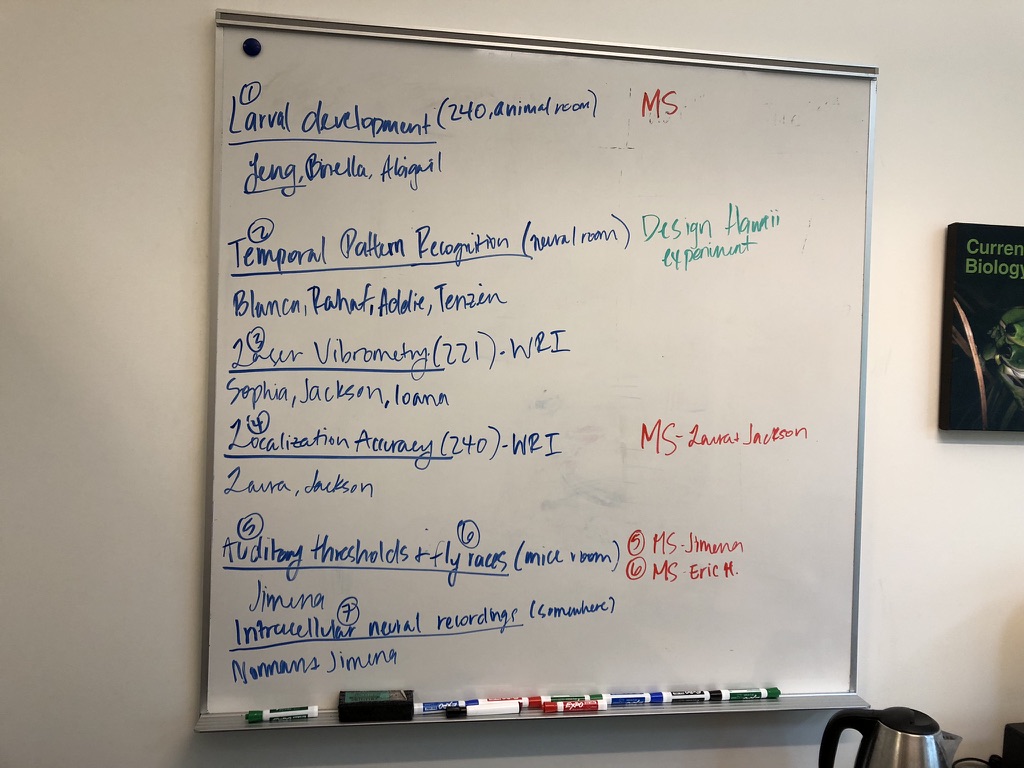 ①
Larval development (240, animal room) MS
Jeng, Binella, Abigail
②
Temporal Pattern Recognition (neural room) Design Hawaii
experiment
Blanca, Rahaf, Addie, Tenzin
③
Laser Vibrometry (221) - WRI
Sophia, Jackson, Ioana
④
Localization Accuracy (240) - WRI MS - Laura + Jackson
Laura, Jackson
⑤ ⑥
Auditory thresholds + fly races (mice room) ⑤ MS - Jimena
⑥ MS - Eric H.
Jimena
⑦
Intracellular neural recordings (somewhere)
Norman & Jimena
Current
Biology
EXPO
EXPO